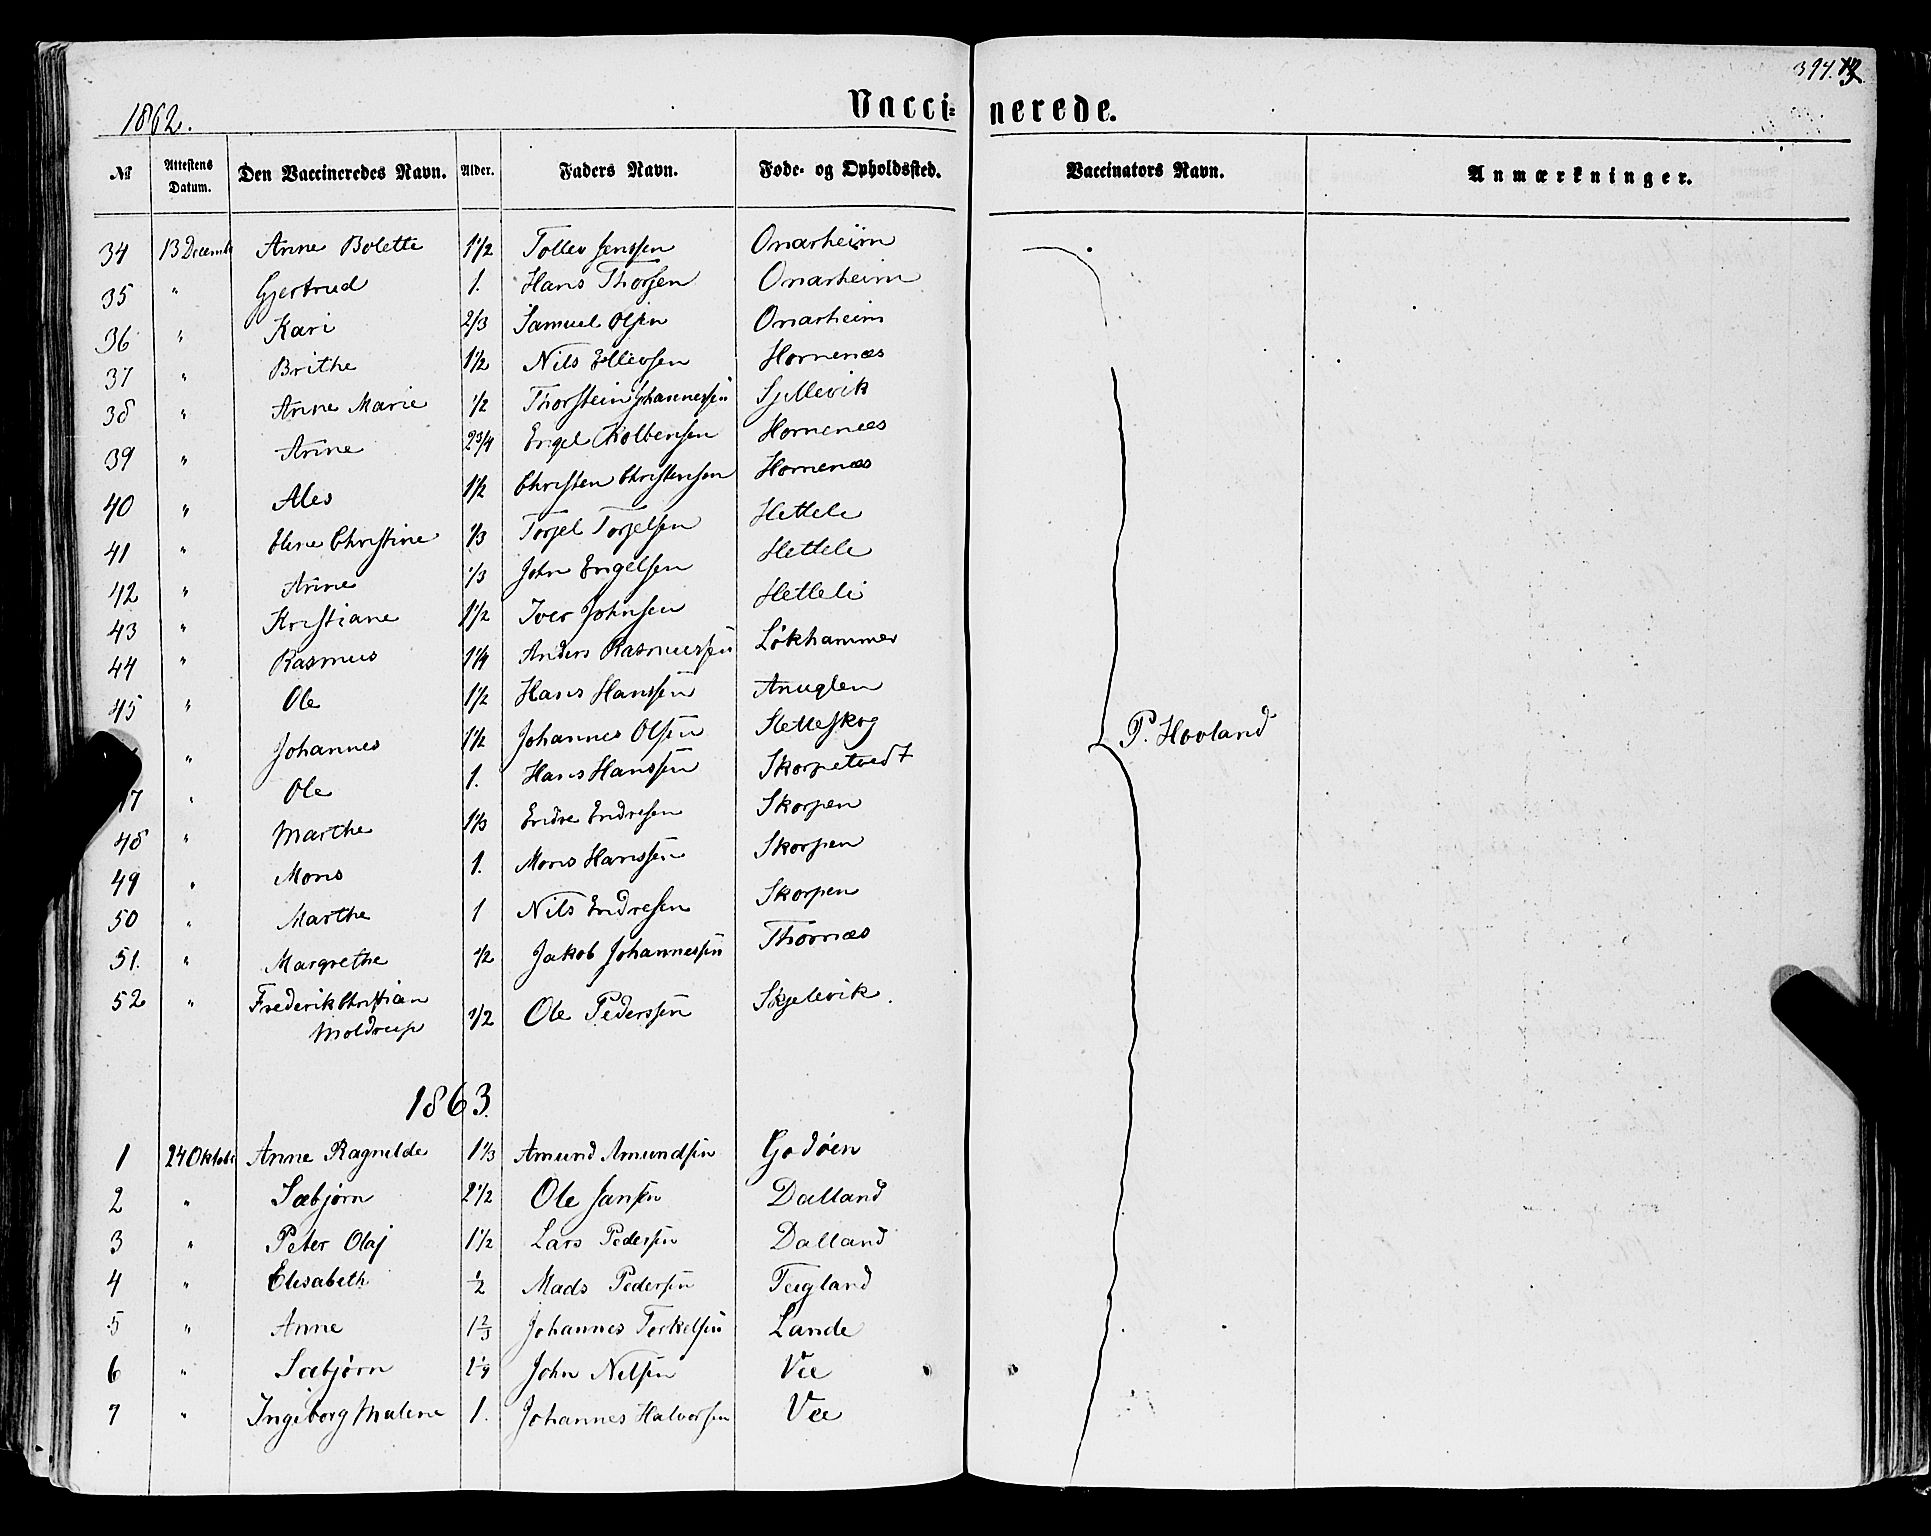 394.
1862.
Vacci- nerede.
№ Attestens Datum. Den Vaccineredes Navn. Alder. Faders Navn. Føde- og Opholdssted. Vaccinators Navn. Anmærkninger.
34 13 Decemb Anne Bolette 1 1/2 Tollev Jenssen Onarheim
35 " Gjertrud 1. Hans Thorsen Onarheim
36 " Kari 2/3 Samuel Olsen Onarheim
37 " Brithe 1 1/2 Nils Ellevsen Hornenæs
38 " Anne Marie 1/2 Thorstein Johannessen
39 " Anne 2 3/4 Engel Kolbensen Hornenæs
40 " Ales 1 1/2 Christen Christensen Hornenæs
41 " Elene Christine 1/3 Torjel Torjelsen Hettele
42 " Anne 1/3 John Engelsen Hettele
43 " Kristiane 1 1/2 Iver Johnsen Hetleli
44 " Rasmus 1 1/4 Anders Rasmussen Løkhammer
45 " Ole 1 1/2 Hans Hanssen Anuglen
" Johannes 1 1/2 Johannes Olsen Sletteskog
P. Hovland
47 " Ole 1. Hans Hanssen Skorpetvedt
48 " Marthe 1 1/3 Endre Endresen Skorpen
49 " Mons 1. Mons Hanssen Skorpen
50 " Marthe 1 Nils Endresen Skorpen
51. " Margrethe 1/2 Jakob Johannessen Thornæs
52 " Frederik Christian
Moldrup 1/2 Ole Pederssen Skjelevik.
1863.
1 24 Oktob Anne Ragnilde 1 1/3 Amund Amundsen Godøen
2 " Sæbjørn 2 1/2 Ole Jansen Dalland
3 " Peter Olaj 1 1/2 Lars Pedersen Dalland
4 " Elisabeth 1/2 Mads Pedersen Teigland
5 " Anne 1 2/3 Johannes Terkelsen Lande
6 " Sæbjørn 2 1/4 John Nilsen Vee
7 " Ingeborg Malene 1. Johannes Halvorsen Vee